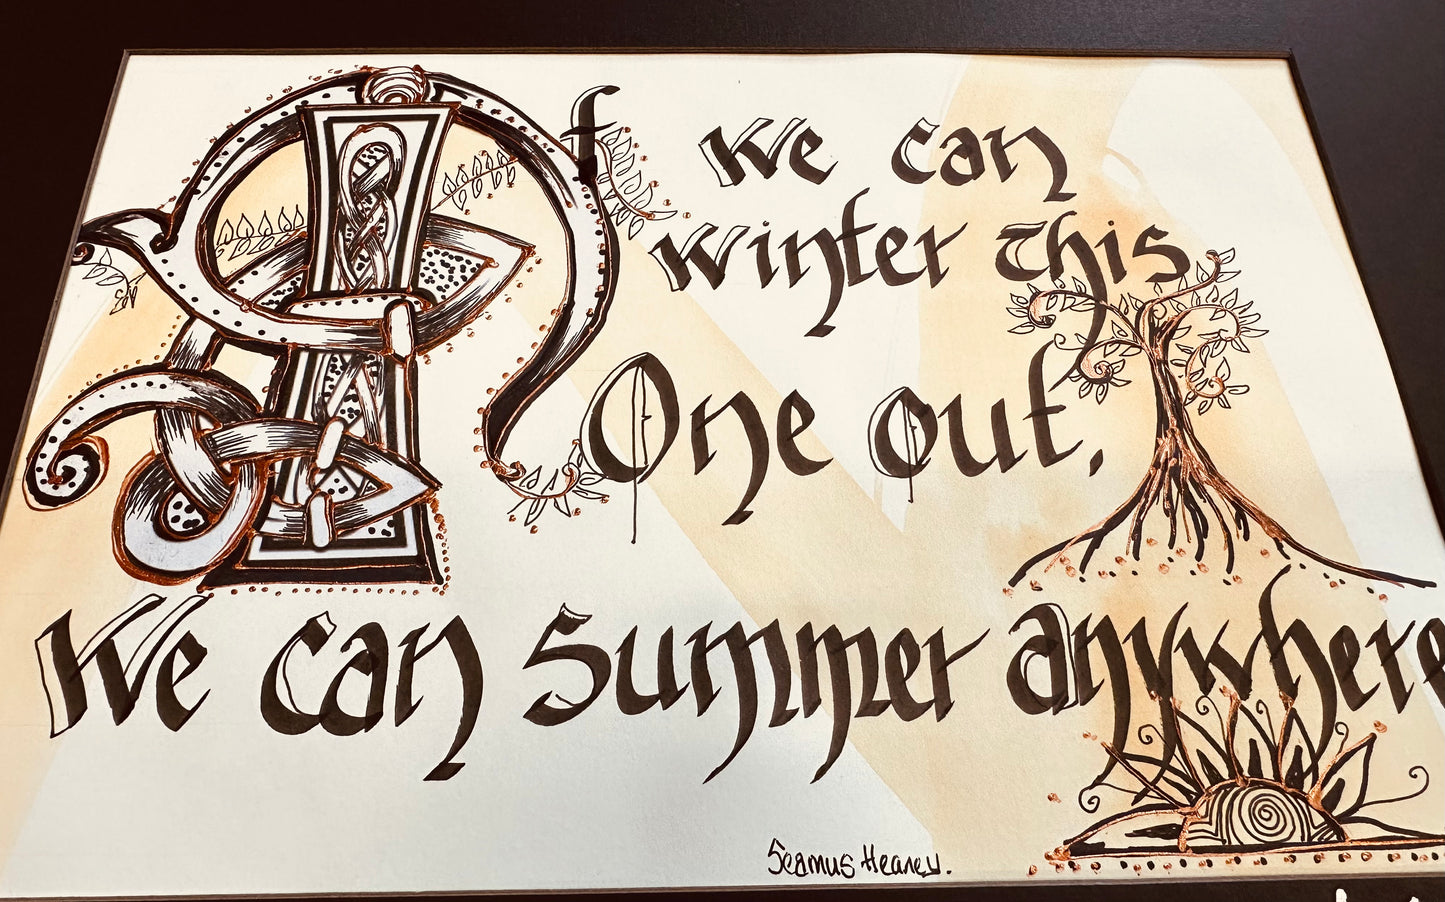 If we can
winter this
One out,
We can Summer anywhere
Seamus Heaney.